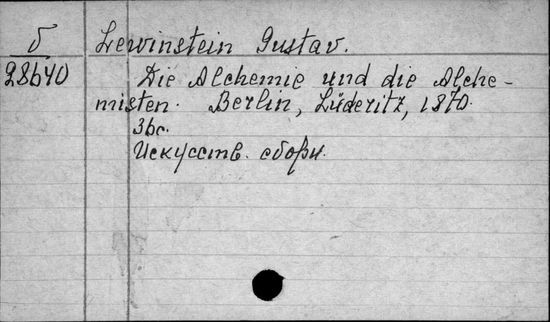 б Lewinstein Gustav.
28640 Die Alchemie und die Alche-
misten. Berlin, Lüderitz, 1870.
36с.
Искусств. сборн.